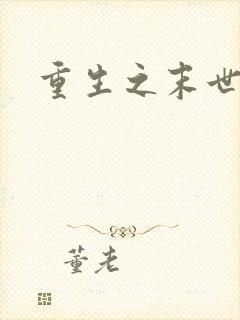 重生之末世
董老